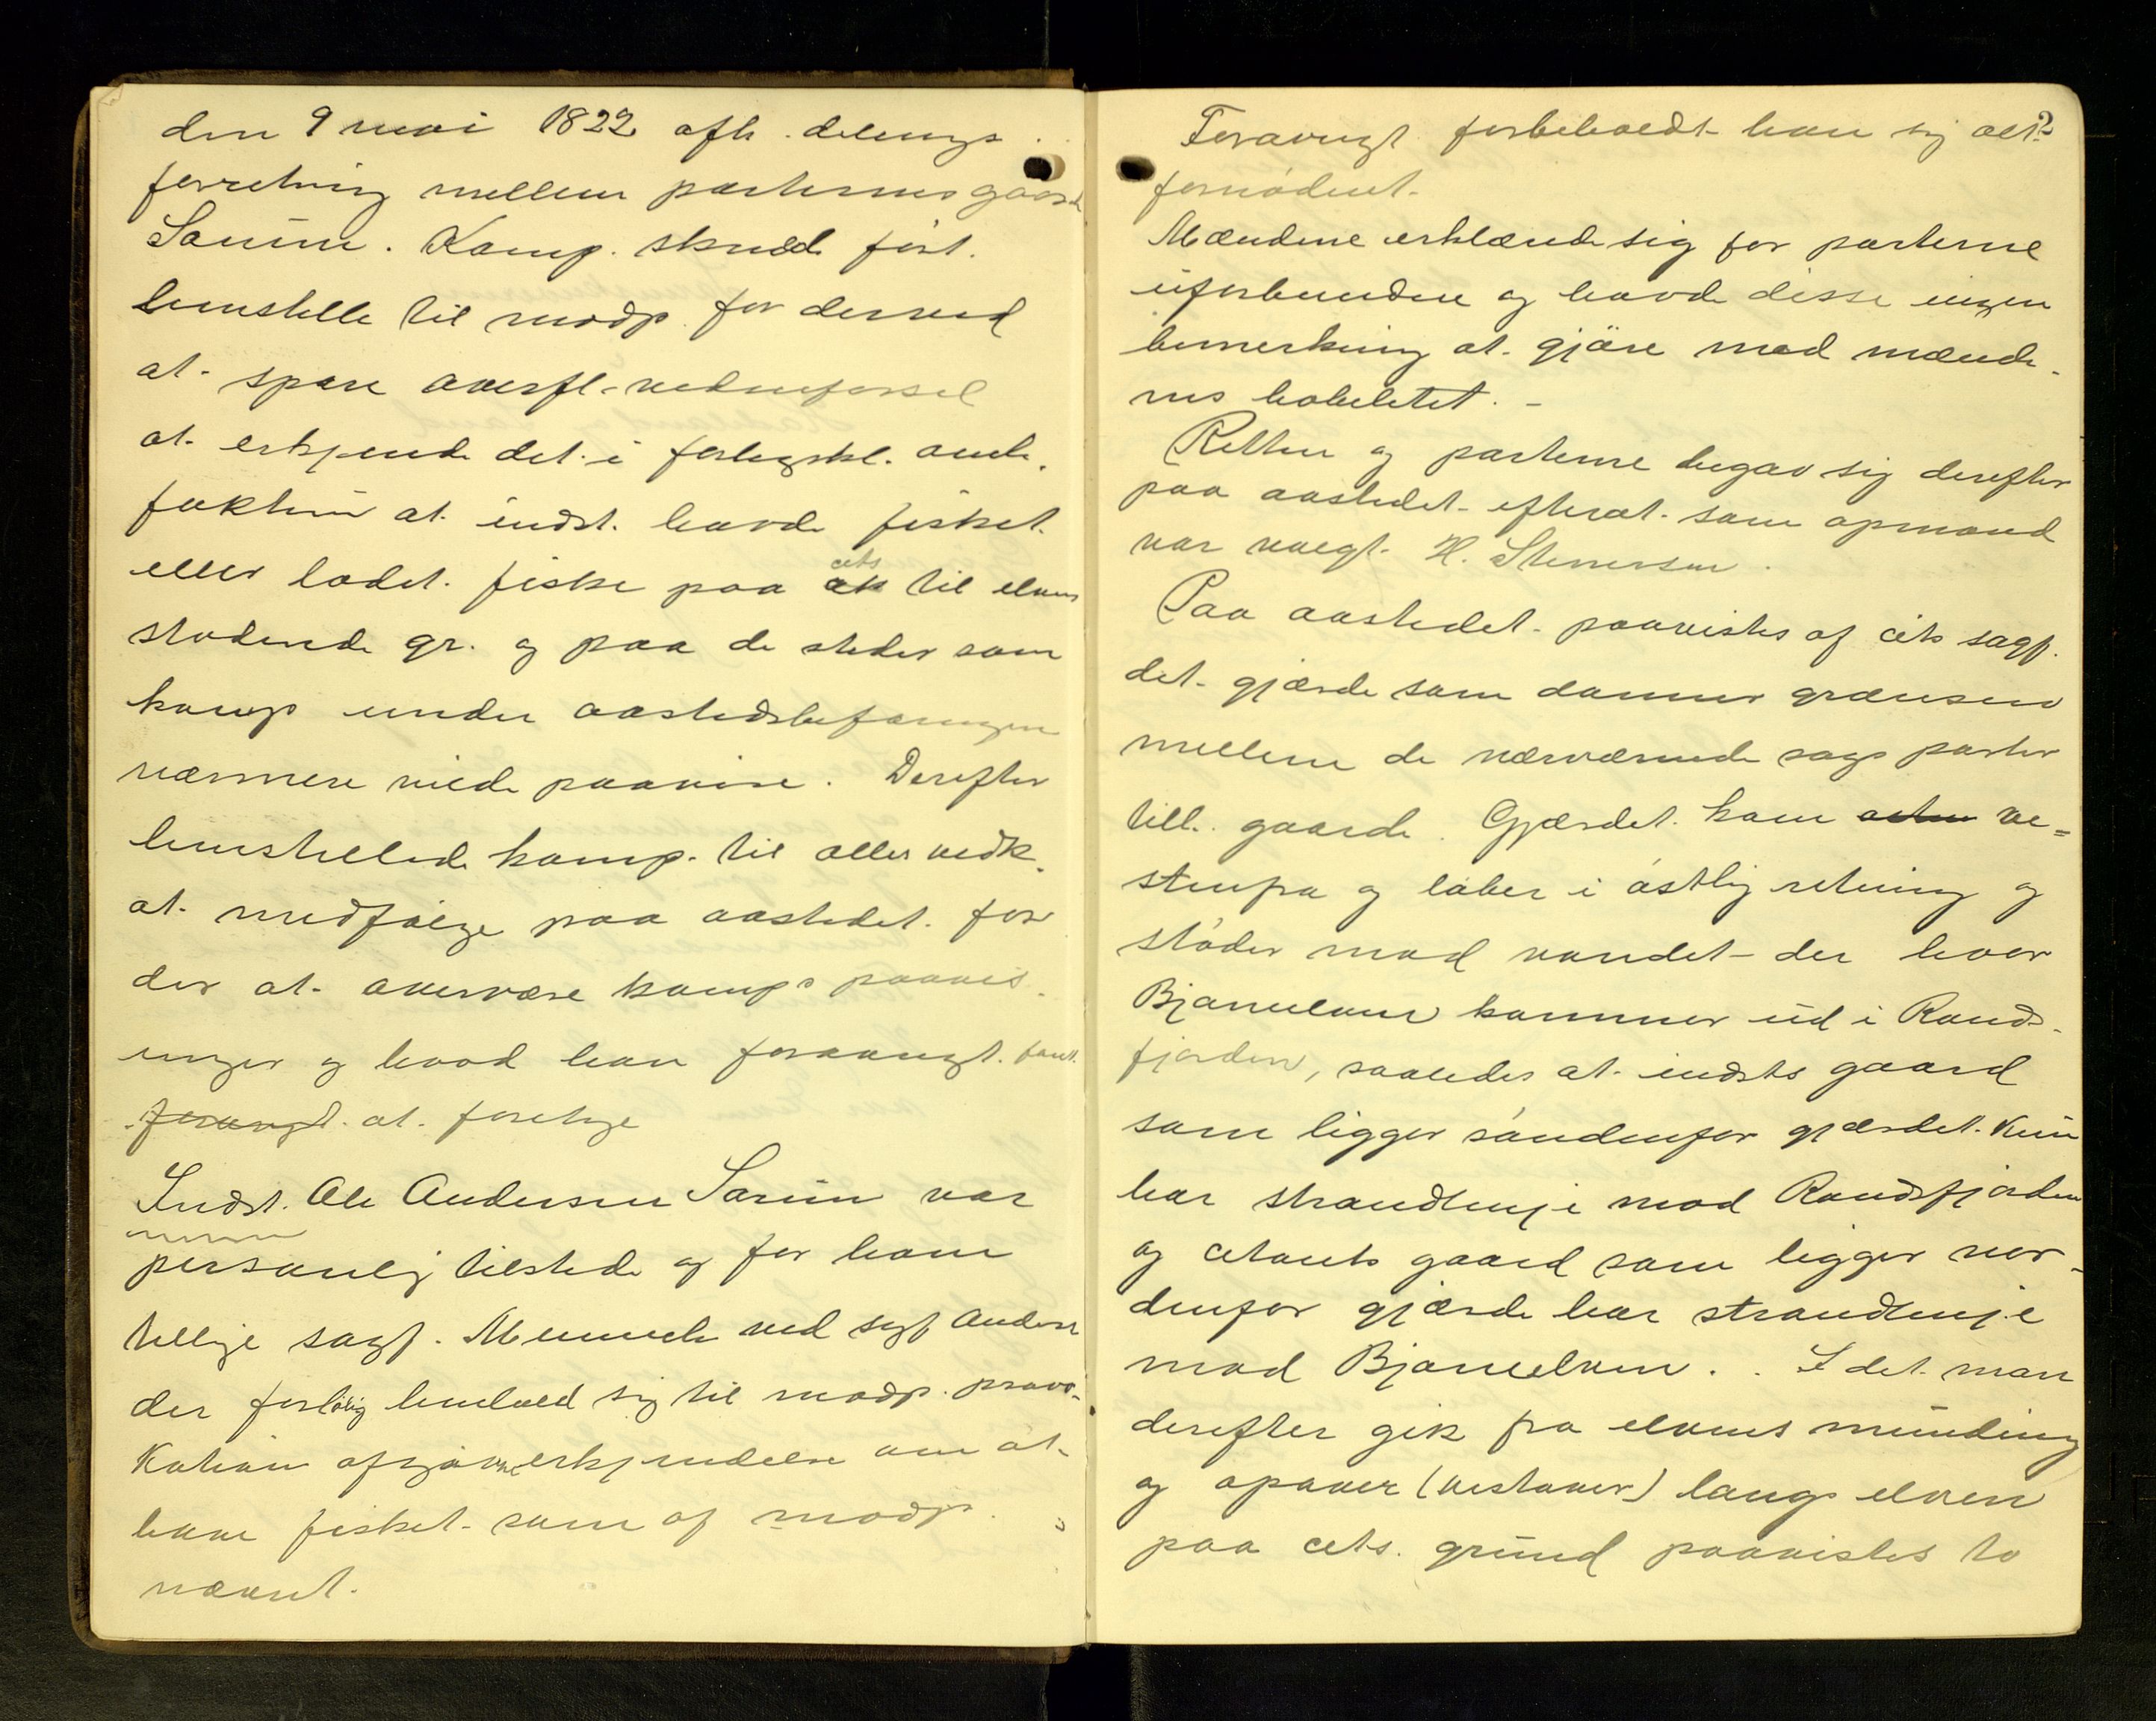 den 9 mai 1822 afh. delings
forretning mellem parternes gaarde
Sørum. Komp. skulde först.
hemstille til modp. for derved
at spare overfl. vidneførsel
at erkjende det i forligskl. anh.
faktum at indst. havde fisket
eller ladet fiske paa cits til elven
stødende gr. og paa de steder som
komp under aastedsbefaringen
nærmere vilde paavise. Derefter
hemstillede komp. til alle vedk.
at medfølge paa aastedet for
der at overvære komps paavis
ninger og hvad han forøvrigt fant
forøvrigt at foretage
Indst. Ole Andersen Sørum var
personlig tilstede og for ham
tillige sagf. Meinich ved sagf. Andersen
der forløbig henholdt sig til modp. provo-
kation afgjøre erkjendelse om at
have fisket som af modp.
nævnt.
2
Forøvrigt forbeholdt han sig alt
fornødent.
Mændene erklærede sig for parterne
uforbundne og havde disse ingen
bemerkning at gjøre mod mænde-
nes habilitet. -
Retten og parterne begav sig derefter
paa aastedet efterat som opmand
var valgt H. Stenersen.
Paa aastedet paavistes af cits sagf.
det gjærde som danner grænsen
mellem de nærværende sags parter
till. gaarde. Gjærdet kom ve=
stenfra og løber i østlig retning og
støder mod vandet der hvor
Bjoneelven kommer ud i Rands-
fjorden, saaledes at indsts gaard
som ligger søndenfor gjærdet kun
har strandlinje mod Randsfjorden
og citants gaard som ligger nor-
denfor gjærde har strandlinje
mod Bjoneelven. I det man
derefter gik fra elvens munding
og opover (vestover) langs elven
paa cits. grund paavistes to